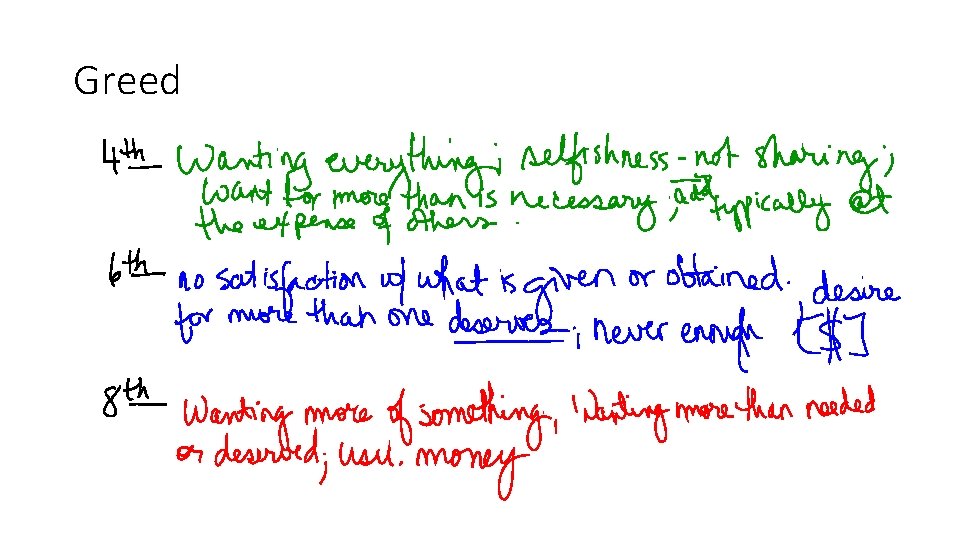 Greed
4th Wanting everything; selfishness - not sharing;
want for more than is necessary; and typically at
the expense of others.
6th no satisfaction w/ what is given or obtained. desire
for more than one deserves; never enough [$]
8th Wanting more of something; Wanting more than needed
or deserved; usu. money